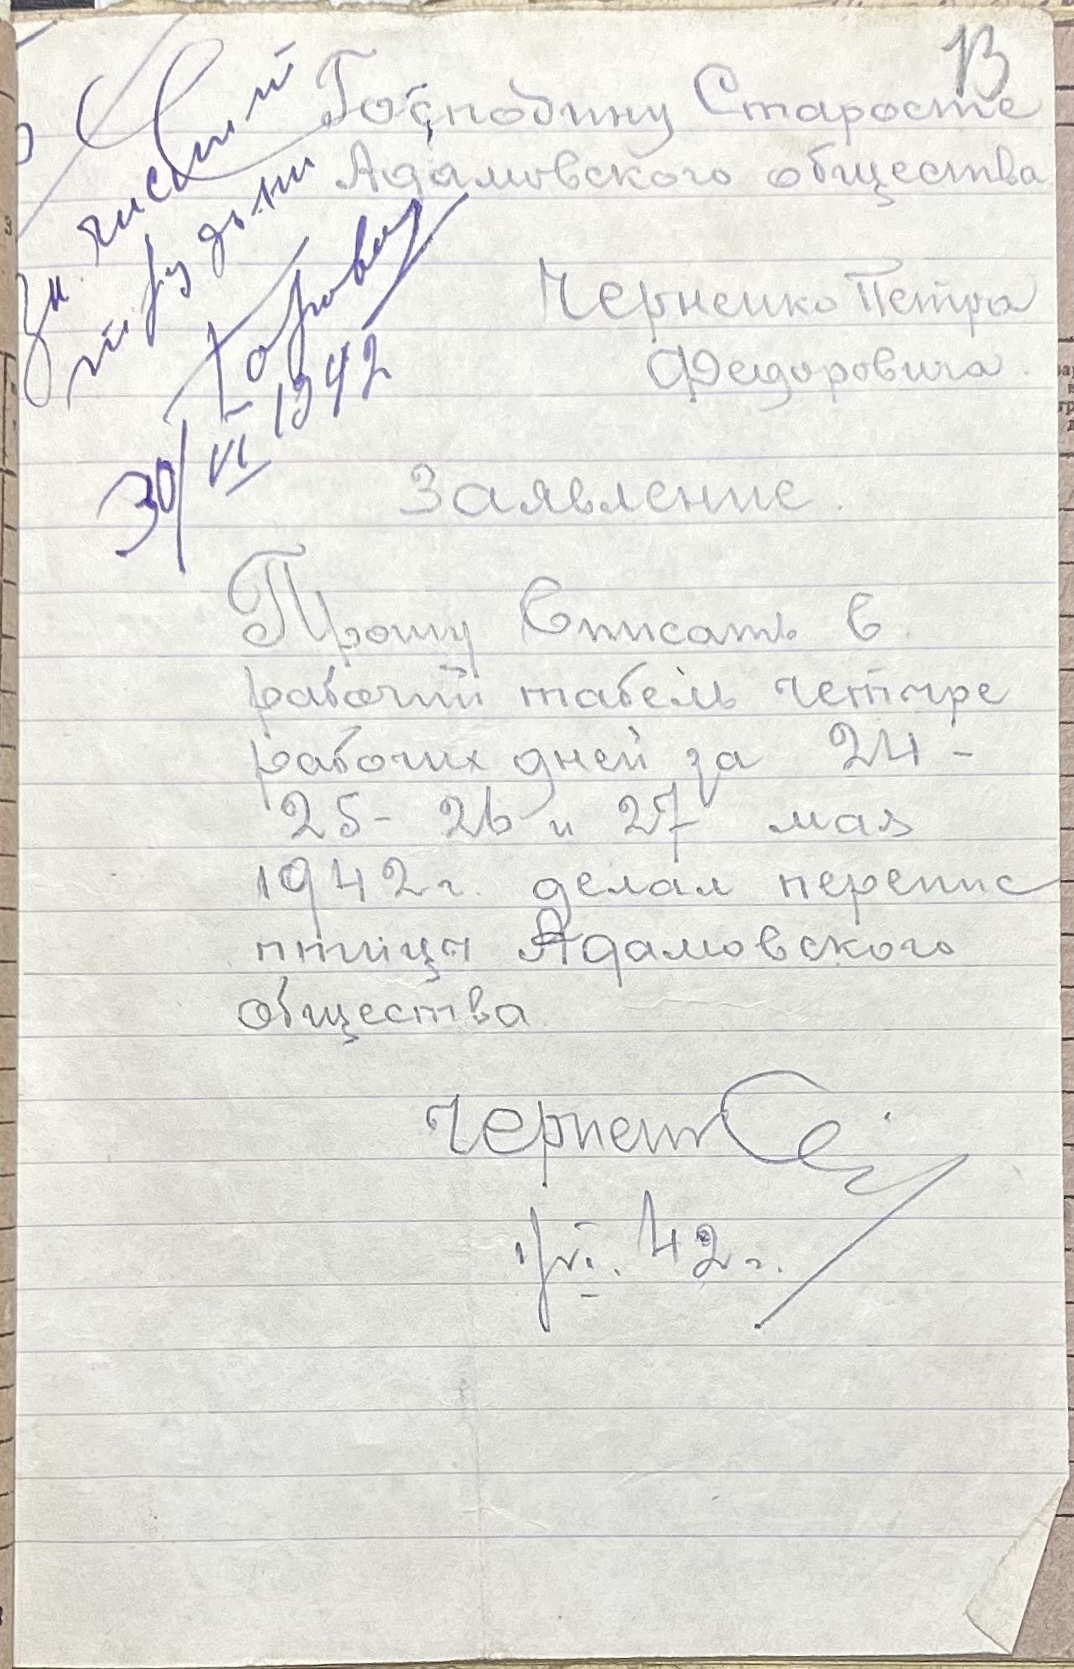 13
Господину Старосте
Адамовского общества
Черненко Петра
Федоровича.
За числит
труддни
30/VI 1942
Заявление.
Прошу вписать в
рабочий табель четыре
рабочих дней за 24-
25- 26 и 27 мая
1942 г. делал перепис
птици Адамовского
общества
Черненко
1/VI. 42 г.